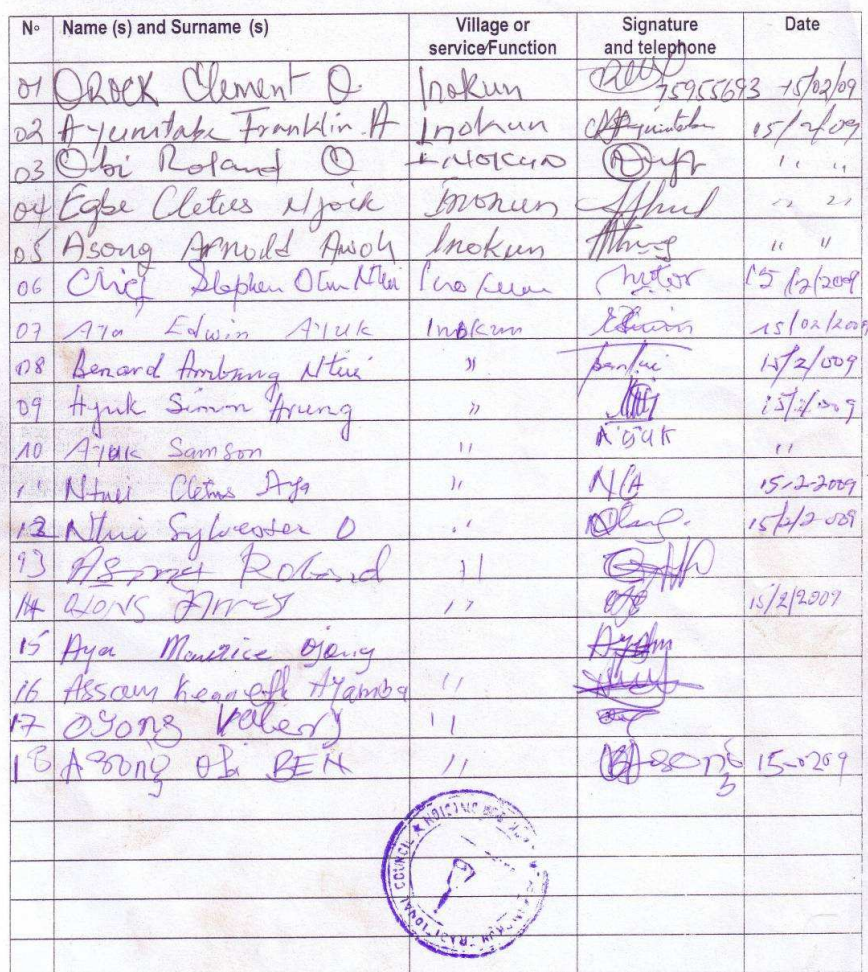 N° Name (s) and Surname (s) Village or service/Function Signature and telephone Date
01 Orock Clement O. Inokun 75955693 15/02/09
02 Ayumtabe Franklin A Inokun Ayumtabe 15/2/09
03 Obi Roland O INOKUN " "
04 Egbe Cletus Njock Inokun " "
05 Asong Arnold Awoh Inokun " "
06 Chief Stephen Ntui Inokun 15/2/2009
07 Aya Edwin Ayuk Inokun Edwin 15/02/2009
08 Benard Ambang Ntui " 15/2/009
09 Ayuk Simon Arung " 15/2/009
10 Ayuk Samson " AYUK "
11 Ntui Cletus Aya " N/A 15-2-2009
12 Ntui Sylvester O " 15/2/2009
13 Roland "
14 "  15/2/2009
15 Aya Maurice Ojong
16 Assam Kenneth Ayamba "
17 Oyong Valery "
18 Asong Obi BEN " Asong 15-0209
TRADITIONAL COUNCIL